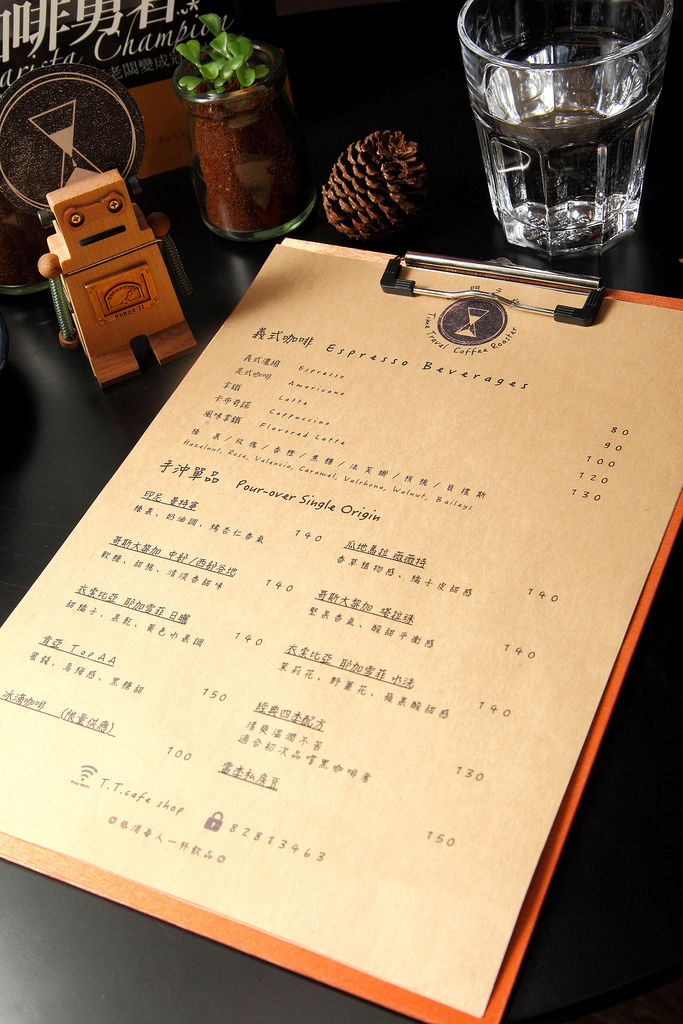 咖啡勇者
Barista Champion
老闆變成冠
Robot II
Time Travel Coffee Roaster
義式咖啡 Espresso Beverages
義式濃縮 Espresso 80
美式咖啡 Americano 90
拿鐵 Latte 100
卡布奇諾 Cappuccino 120
風味拿鐵 Flavored Latte 130
榛果/玫瑰/杏橙/焦糖/法芙娜/核桃/貝禮斯
Hazelnut, Rose, Valencia, Caramel, Valrhona, Walnut, Baileys
手沖單品 Pour-over Single Origin
印尼 曼特寧 140
榛果、奶油調、烤杏仁香氣
瓜地馬拉 薇薇特 140
香草植物感、橘子皮甜感
哥斯大黎加 中部/西部谷地 140
軟糖、甜桃、清淡香甜味
哥斯大黎加 塔拉珠 140
堅果香氣、酸甜平衡感
衣索比亞 耶加雪菲 日曬 140
甜橘子、果乾、黃色水果調
衣索比亞 耶加雪菲 水洗 140
茉莉花、野薑花、蘋果酸甜感
肯亞 TOPAA 150
蜜餞、烏梅感、黑糖甜
經典四季配方 130
清爽溫潤不苦
適合初次品嚐黑咖啡者
冰滴咖啡 (限量供應) 100
當季私房豆 150
T.T.cafe shop
82813463
◎低消每人一杯飲品◎